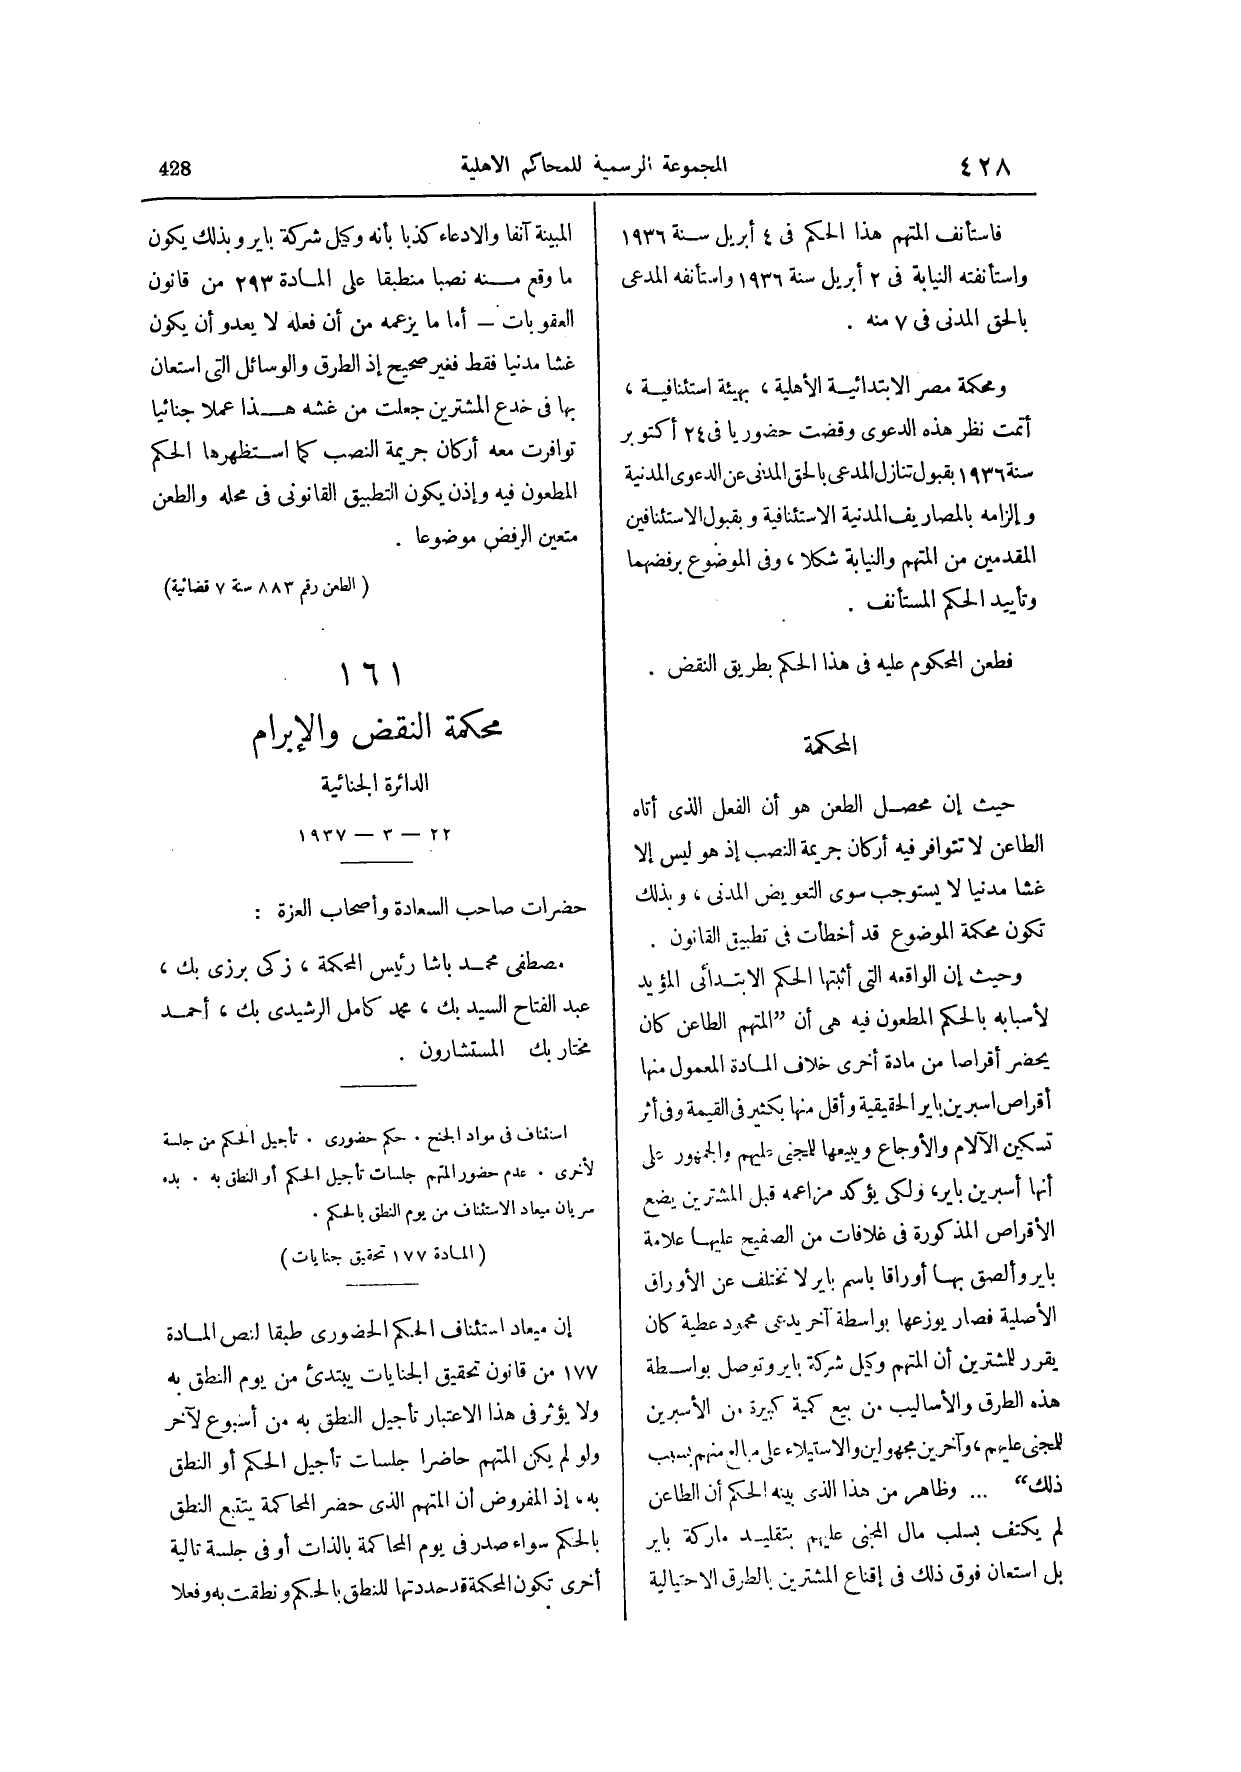 ٤٢٨
المجموعة الرسمية للمحاكم الاهلية
428
فاستأنف المتهم هذا الحكم فى ٤ أبريل سنة ١٩٣٦
واستأنفته النيابة فى ٢ أبريل سنة ١٩٣٦ واستأنفه المدعى
بالحق المدنى فى ٧ منه .
ومحكمة مصر الابتدائية الأهلية ، بهيئة استئنافية ،
أتمت نظر هذه الدعوى وقضت حضوريا فى ٢٤ أكتوبر
سنة ١٩٣٦ بقبول تنازل المدعى بالحق المدنى عن الدعوى المدنية
وإلزامه بالمصاريف المدنية الاستئنافية وبقبول الاستئنافين
المقدمين من المتهم والنيابة شكلا ، وفى الموضوع برفضهما
وتأييد الحكم المستأنف .
فطعن المحكوم عليه فى هذا الحكم بطريق النقض .
المحكمة
حيث إن محصل الطعن هو أن الفعل الذى أتاه
الطاعن لا تتوافر فيه أركان جريمة النصب إذ هو ليس إلا
غشا مدنيا لا يستوجب سوى التعويض المدنى ، وبذلك
تكون محكمة الموضوع قد أخطأت فى تطبيق القانون .
وحيث إن الواقعه التى أثبتها الحكم الابتدائى المؤيد
لأسبابه بالحكم المطعون فيه هى أن ”المتهم الطاعن كان
يحضر أقراصا من مادة أخرى خلاف المادة المعمول منها
أقراص اسبرين باير الحقيقية وأقل منها بكثير فى القيمة وفى أثر
تسكين الآلام والأوجاع ويبيعها للمجنى عليهم والجمهور على
أنها أسبرين باير، ولكى يؤكد مزاعمه قبل المشترين يضع
الأقراص المذكورة فى غلافات من الصفيح عليها علامة
باير وألصق بها أوراقا باسم باير لا تختلف عن الأوراق
الأصلية فصار يوزعها بواسطة آخر يدعى محمود عطية كان
يقرر للمشترين أن المتهم وكيل شركة باير وتوصل بواسطة
هذه الطرق والأساليب من بيع كمية كبيرة من الأسبرين
للمجنى عليهم ، وآخرين مجهولين والاستيلاء على مبالغ منهم بسبب
ذلك“ ... وظاهر من هذا الذى بينه الحكم أن الطاعن
لم يكتف بسلب مال المجنى عليهم بتقليد ماركة باير
بل استعان فوق ذلك فى إقناع المشترين بالطرق الاحتيالية
المبينة آنفا والادعاء كذبا بأنه وكيل شركة باير وبذلك يكون
ما وقع منه نصبا منطبقا على المادة ٢٩٣ من قانون
العقوبات — أما ما يزعمه من أن فعله لا يعدو أن يكون
غشا مدنيا فقط فغير صحيح إذ الطرق والوسائل التى استعان
بها فى خدع المشترين جعلت من غشه هذا عملا جنائيا
توافرت معه أركان جريمة النصب كما استظهرها الحكم
المطعون فيه وإذن يكون التطبيق القانونى فى محله والطعن
متعين الرفض موضوعا .
( الطعن رقم ٨٨٣ سنة ٧ قضائية)
١٦١
محكمة النقض والإبرام
الدائرة الجنائية
٢٢ — ٣ — ١٩٣٧
حضرات صاحب السعادة وأصحاب العزة :
مصطفى محمد باشا رئيس المحكمة ، زكى برزى بك ،
عبد الفتاح السيد بك ، محمد كامل الرشيدى بك ، أحمد
مختار بك المستشارون .
استئناف فى مواد الجنح . حكم حضورى . تأجيل الحكم من جلسة
لأخرى . عدم حضور المتهم جلسات تأجيل الحكم أو النطق به . بدء
سريان ميعاد الاستئناف من يوم النطق بالحكم .
( المادة ١٧٧ تحقيق جنايات)
إن ميعاد استئناف الحكم الحضورى طبقا لنص المادة
١٧٧ من قانون تحقيق الجنايات يبتدئ من يوم النطق به
ولا يؤثر فى هذا الاعتبار تأجيل النطق به من أسبوع لآخر
ولو لم يكن المتهم حاضرا جلسات تأجيل الحكم أو النطق
به ، إذ المفروض أن المتهم الذى حضر المحاكمة يتتبع النطق
بالحكم سواء صدر فى يوم المحاكمة بالذات أو فى جلسة تالية
أخرى تكون المحكمة قد حددتها للنطق بالحكم ونطقت به وفعلا